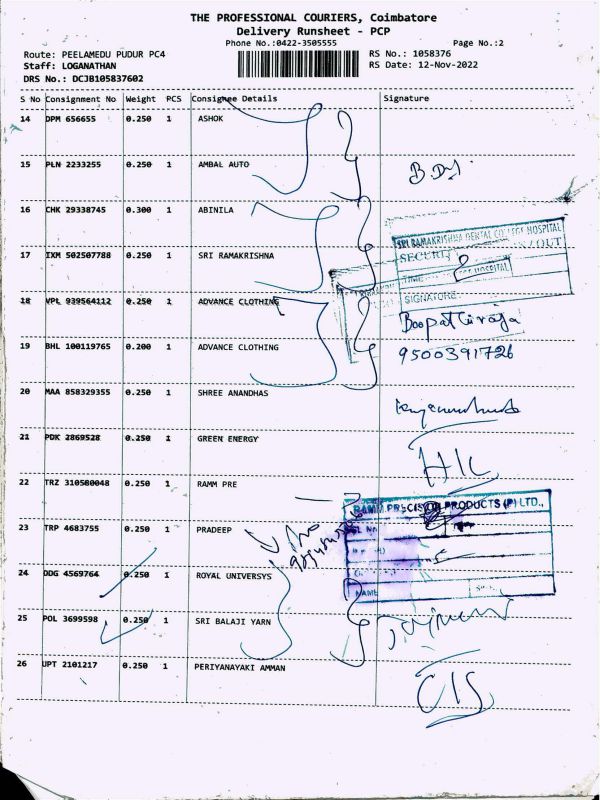 THE PROFESSIONAL COURIERS, Coimbatore
Delivery Runsheet - PCP
Phone No.:0422-3505555
Page No.:2
Route: PEELAMEDU PUDUR PC4
RS No.: 1058376
Staff: LOGANATHAN
RS Date: 12-Nov-2022
DRS No.: DCJB105837602
S No Consignment No Weight PCS Consignee Details Signature
14 DPM 656655 0.250 1 ASHOK
15 PLN 2233255 0.250 1 AMBAL AUTO
16 CHK 29338745 0.300 1 ABINILA
SRI RAMAKRISHNA DENTAL COLLEGE HOSPITAL
SECURITY OUT
17 IXM 502507788 0.250 1 SRI RAMAKRISHNA
TIME HOSPITAL
SIGNATURE
18 VPL 939564112 0.250 1 ADVANCE CLOTHING
Boopathiraja
19 BHL 100119765 0.200 1 ADVANCE CLOTHING
9500391726
20 MAA 858329355 0.250 1 SHREE ANANDHAS
21 PDK 2869528 0.250 1 GREEN ENERGY
22 TRZ 310580048 0.250 1 RAMM PRE
RAMM PRECISION PRODUCTS (P) LTD.,
23 TRP 4683755 0.250 1 PRADEEP
24 DDG 4569764 0.250 1 ROYAL UNIVERSYS
NAME
25 POL 3699598 0.250 1 SRI BALAJI YARN
26 UPT 2101217 0.250 1 PERIYANAYAKI AMMAN